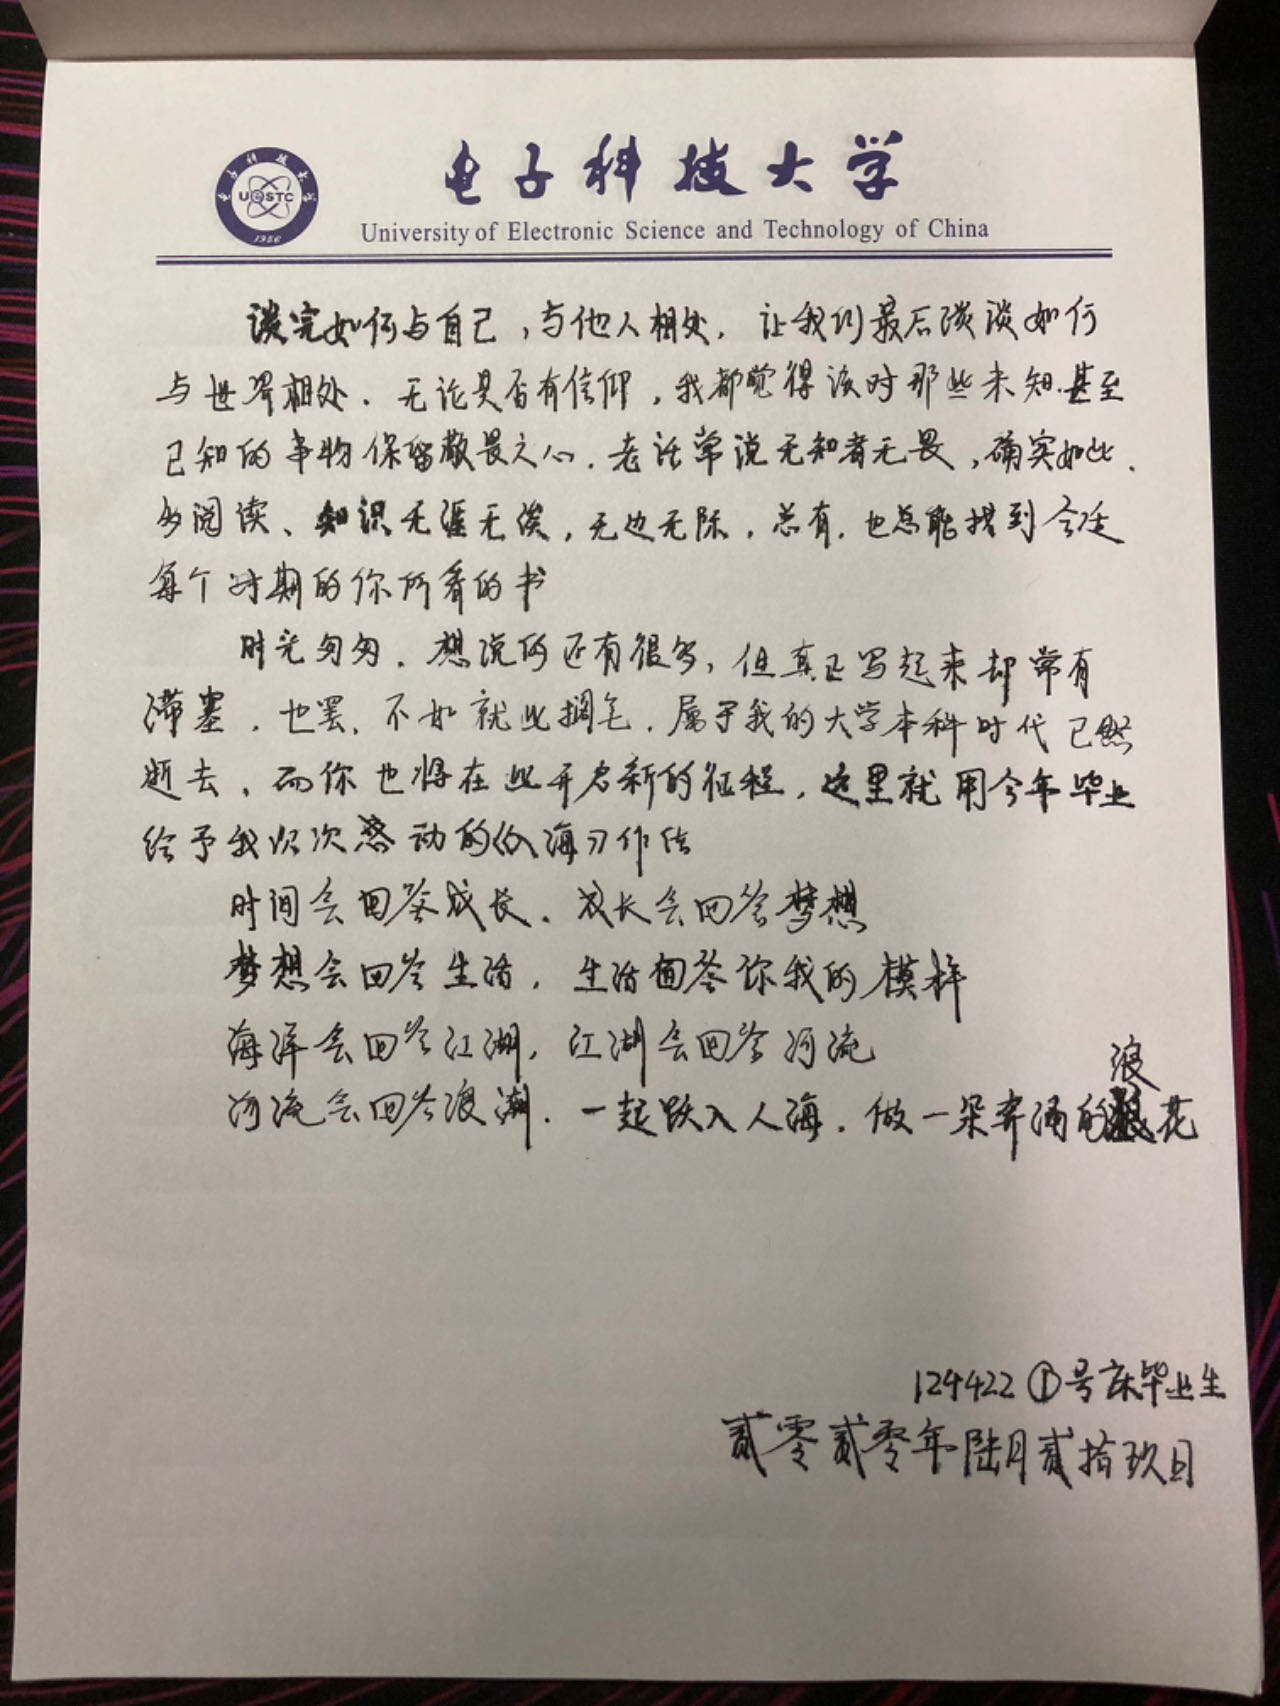 电子科技大学
University of Electronic Science and Technology of China
UESTC
1956
谈完如何与自己，与他人相处，让我们最后谈谈如何
与世界相处．无论是否有信仰，我都觉得该对那些未知．甚至
已知的事物保留敬畏之心．老话常说无知者无畏，确实如此．
多阅读、知识无涯无涘，无边无际，总有．也总能找到合适
每个时期的你所看的书
时光匆匆．想说的还有很多，但真正写起来却常有
滞塞．也罢．不如就此搁笔．属于我的大学本科时代已然
逝去，而你也将在此开启新的征程．这里就用今年毕业
给予我次感动的《入海》作结
时间会回答成长．成长会回答梦想
梦想会回答生活，生活回答你我的模样
海洋会回答江湖，江湖会回答河流
河流会回答浪潮．一起跃入人海．做一朵奔涌的浪花
124422 ①号床毕业生
贰零贰零年陆月贰拾玖日